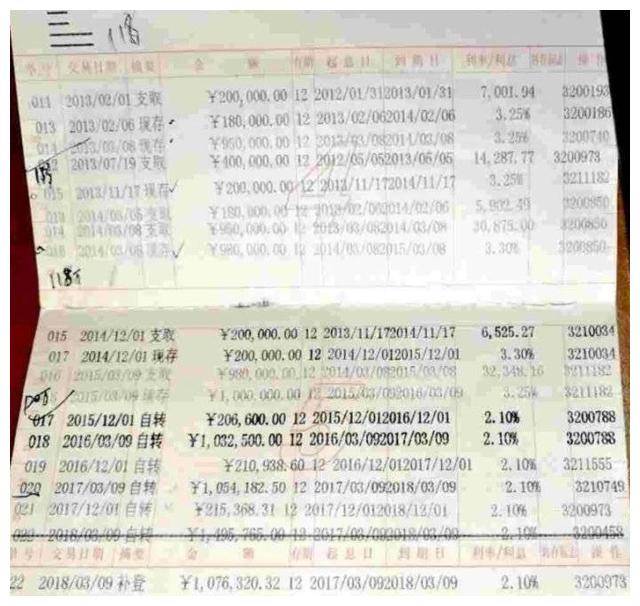 118
单号 交易日期 摘要 金 额 存期 起息日 到期日 利率/利息 操作
011 2013/02/01 支取 ¥200,000.00 12 2012/01/31 2013/01/31 7,001.94 3200193
013 2013/02/06 现存 ¥180,000.00 12 2013/02/06 2014/02/06 3.25% 3200186
014 2013/03/08 现存 ¥950,000.00 12 2013/03/08 2014/03/08 3.25% 3200740
012 2013/07/19 支取 ¥400,000.00 12 2012/05/05 2013/05/05 14,287.77 3200973
015 2013/11/17 现存 ¥200,000.00 12 2013/11/17 2014/11/17 3.25% 3211182
013 2014/03/08 支取 ¥180,000.00 12 2013/02/06 2014/02/06 3200850
014 2014/03/08 支取 ¥950,000.00 12 2013/03/08 2014/03/08 30,875.00 3200850
016 2014/03/08 现存 ¥980,000.00 12 2014/03/08 2015/03/08 3.30% 3200850
118万
015 2014/12/01 支取 ¥200,000.00 12 2013/11/17 2014/11/17 6,525.27 3210034
017 2014/12/01 现存 ¥200,000.00 12 2014/12/01 2015/12/01 3.30% 3210034
016 2015/03/09 支取 ¥980,000.00 12 2014/03/08 2015/03/08 32,348.16 3211182
2015/03/09 现存 ¥1,000,000.00 12 2015/03/09 2016/03/09 3.25% 3211182
017 2015/12/01 自转 ¥206,600.00 12 2015/12/01 2016/12/01 2.10% 3200788
018 2016/03/09 自转 ¥1,032,500.00 12 2016/03/09 2017/03/09 2.10% 3200788
019 2016/12/01 自转 ¥210,938.60 12 2016/12/01 2017/12/01 2.10% 3211555
020 2017/03/09 自转 ¥1,054,182.50 12 2017/03/09 2018/03/09 2.10% 3210749
021 2017/12/01 自转 ¥215,368.31 12 2017/12/01 2018/12/01 2.10% 3200973
022 2018/03/09 自转 ¥1,495,765.00 12 2017/03/09 2018/03/09 2.10% 3200458
单号 交易日期 摘要 金 额 存期 起息日 到期日 利率/利息 操作
22 2018/03/09 补登 ¥1,076,320.32 12 2017/03/09 2018/03/09 2.10% 3200973